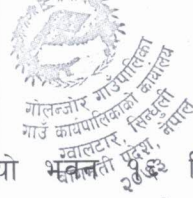 गोलन्जोर गाउँपालिका
गाउँ कार्यपालिकाको कार्यालय
ग्वालटार, सिन्धुली
बागमती प्रदेश, नेपाल
२०७३
यो भवन १६